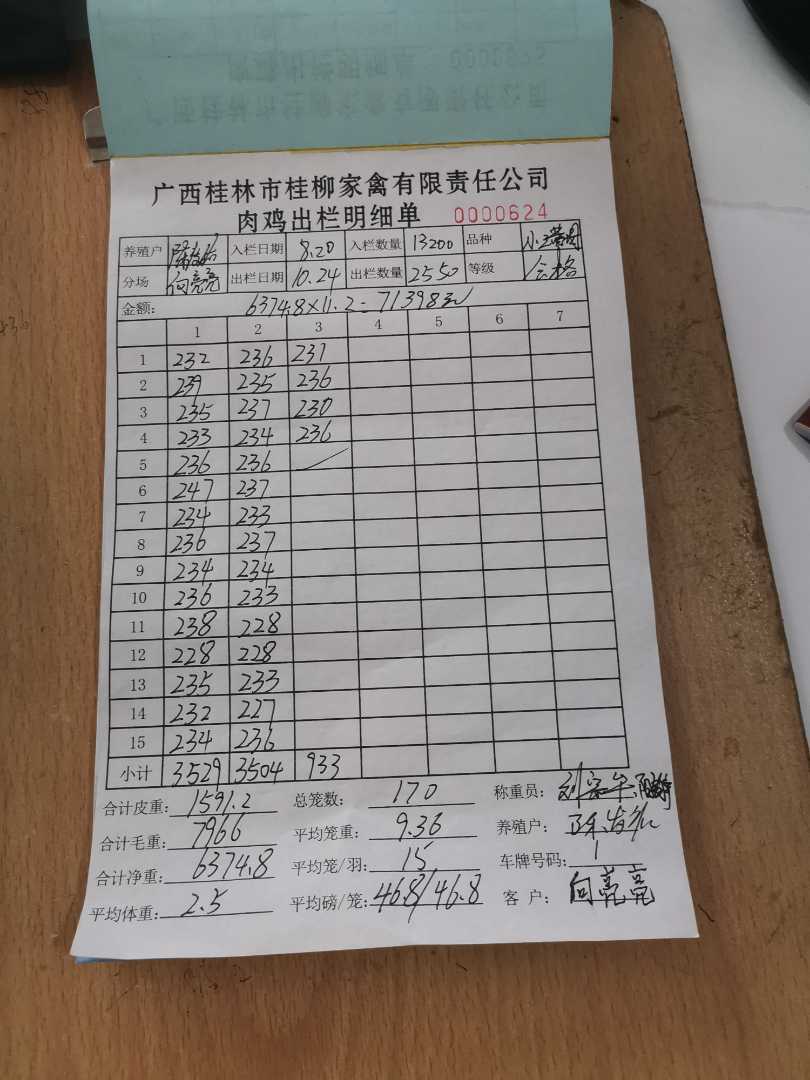 广西桂林市桂柳家禽有限责任公司
肉鸡出栏明细单 0000624
养殖户 入栏日期 8.20 入栏数量 13200 品种
分场 向亮亮 出栏日期 10.24 出栏数量 2550 等级 合格
金额: 6374.8×11.2=71398元
1 2 3 4 5 6 7
1 232 236 231
2 239 235 236
3 235 237 230
4 233 234 236
5 236 236
6 247 237
7 234 233
8 236 237
9 234 234
10 236 233
11 238 228
12 228 228
13 235 233
14 232 227
15 234 236
小计 3529 3504 933
合计皮重: 1591.2 总笼数: 170 称重员:
合计毛重: 7966 平均笼重: 9.36 养殖户:
合计净重: 6374.8 平均笼/羽: 15 车牌号码: 1
平均体重: 2.5 平均磅/笼: 46.8/46.8 客户: 向亮亮